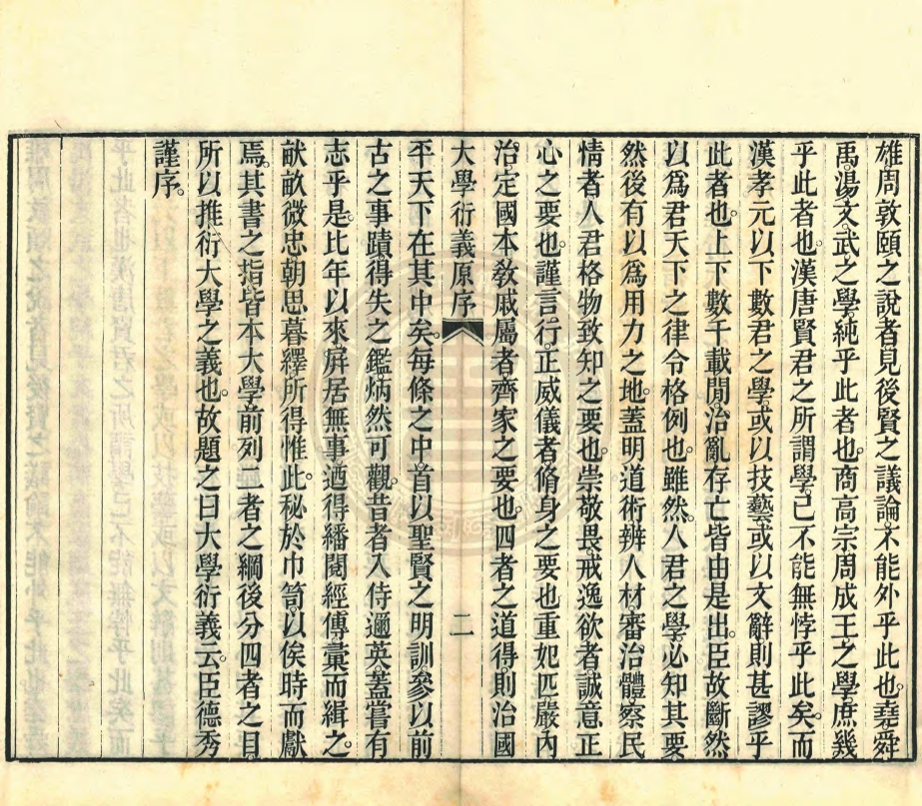 雄周敦頤之說者見後賢之議論不能外乎此也堯舜
禹湯文武之學純乎此者也商高宗周成王之學庶幾
乎此者也漢唐賢君之所謂學已不能無悖乎此矣而
漢孝元以下數君之學或以技藝或以文辭則甚謬乎
此者也上下數千載閒治亂存亡皆由是出臣故斷然
以爲君天下之律令格例也雖然人君之學必知其要
然後有以爲用力之地蓋明道術辨人材審治體察民
情者人君格物致知之要也崇敬畏戒逸欲者誠意正
心之要也謹言行正威儀者脩身之要也重妃匹嚴內
治定國本敎戚屬者齊家之要也四者之道得則治國
大學衍義原序
二
平天下在其中矣每條之中首以聖賢之明訓參以前
古之事蹟得失之鑑炳然可觀昔者入侍邇英蓋嘗有
志乎是比年以來屏居無事迺得繙閱經傳彚而緝之
畎畝微忠朝思暮繹所得惟此秘於巾笥以俟時而獻
焉其書之指皆本大學前列二者之綱後分四者之目
所以推衍大學之義也故題之曰大學衍義云臣德秀
謹序